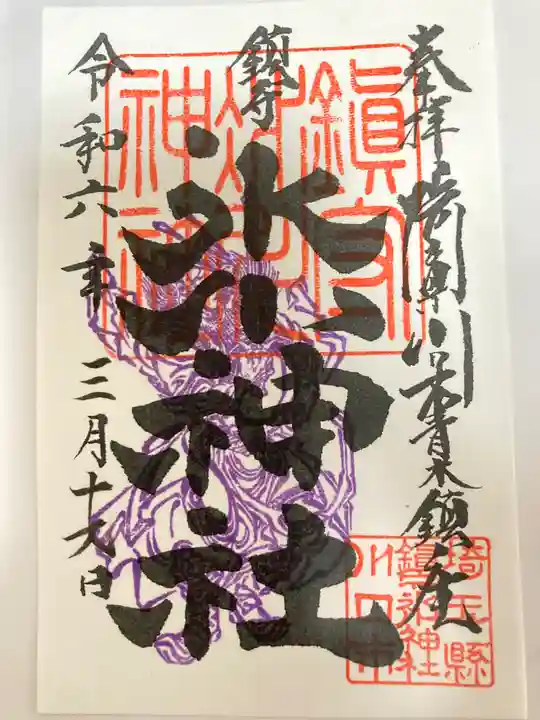 奉拝 埼玉県川口市青木鎮座
鎮守
氷川神社
令和六年三月十九日
鎮守
氷川
神社
埼玉縣
鎮守氷川神社
川口市